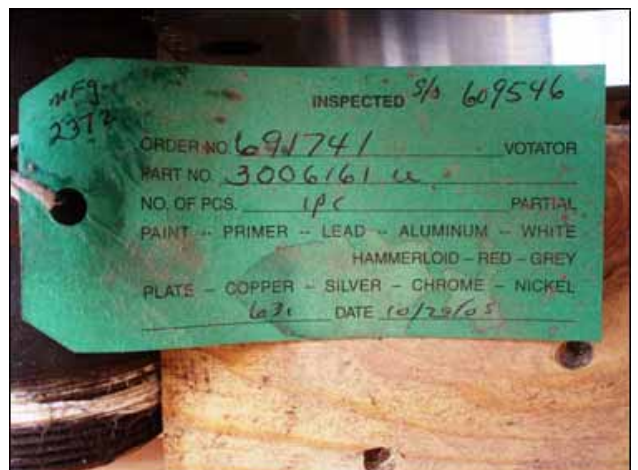 mfg
2372
INSPECTED S/O 609546
ORDER NO. 691741 VOTATOR
PART NO. 3006161
NO. OF PCS. 1pc PARTIAL
PAINT -- PRIMER -- LEAD -- ALUMINUM -- WHITE
HAMMERLOID – RED – GREY
PLATE – COPPER – SILVER – CHROME – NICKEL
631 DATE 10/29/05